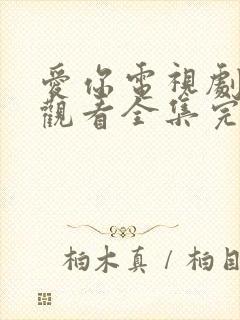 愛你電視劇
觀看全集完
柏木真 / 柏目